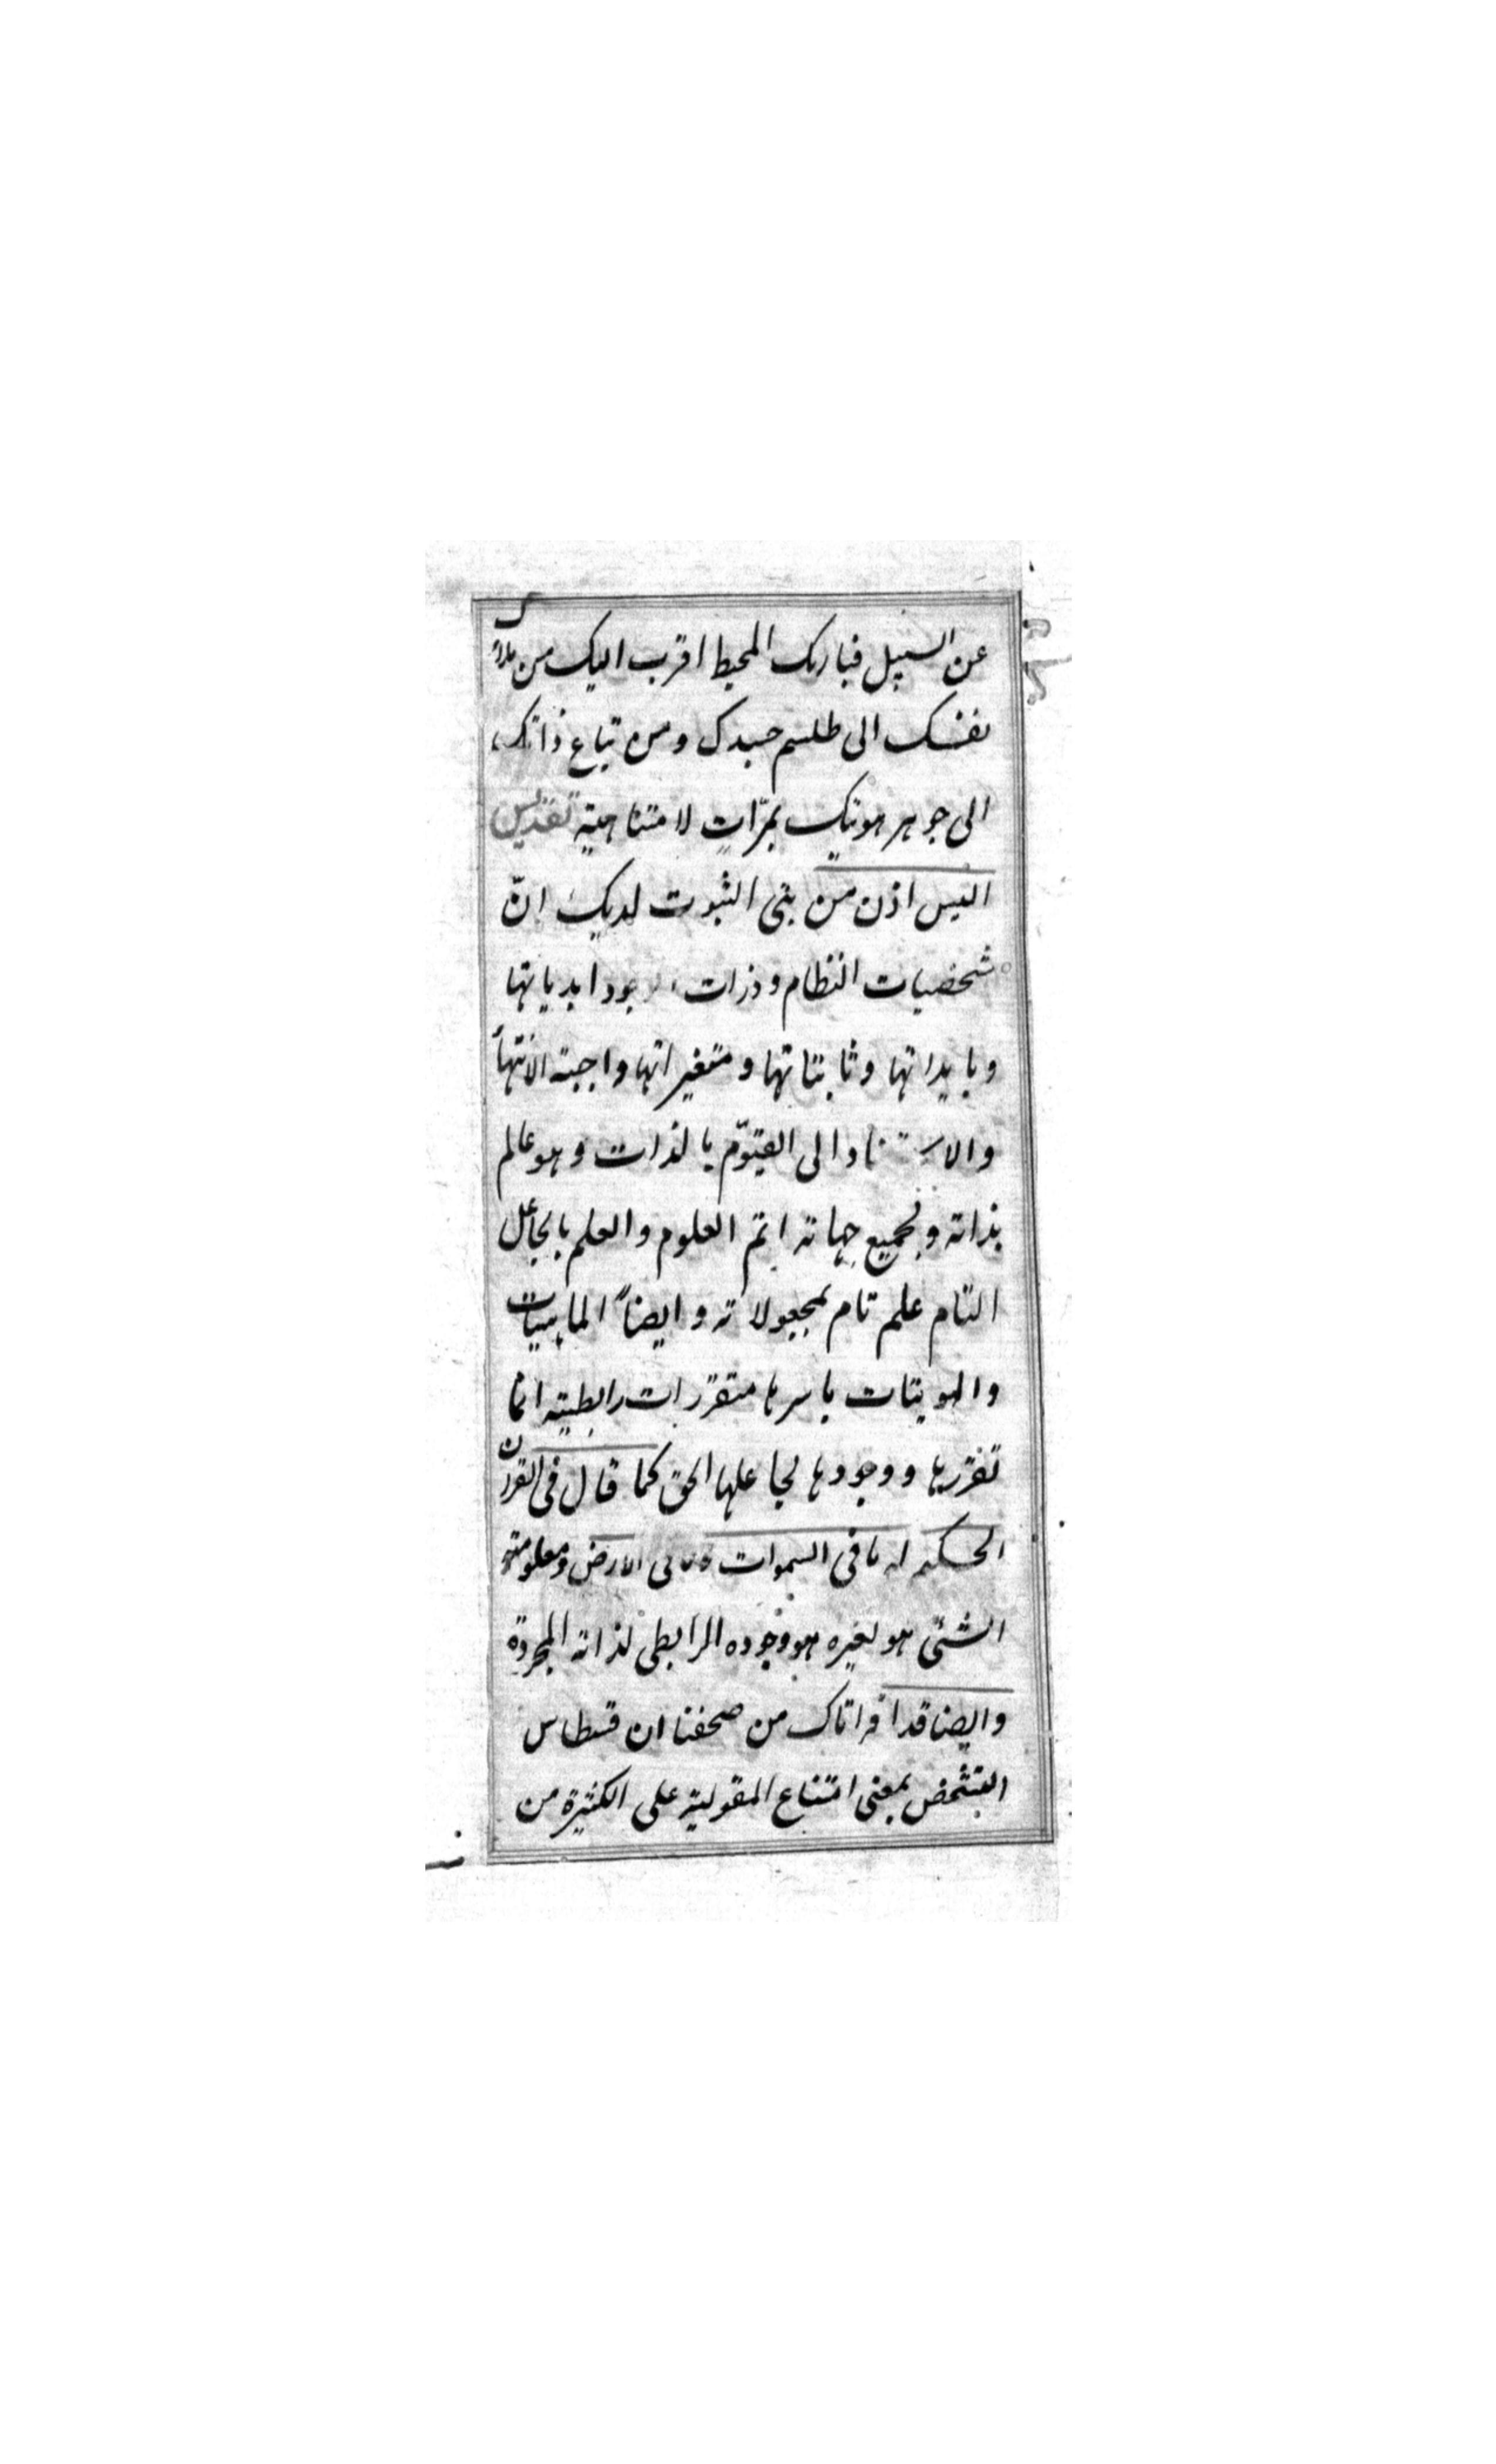 عن السبيل فبارئك المحيط اقرب اليك من
نفسك الى طلسم جسدك ومن تباع ذاتك
الى جوهر هويتك بمرّاتٍ لا متناهية تقديس
اليس اذن من بنى الثبوت لديك انّ
شخصيات النظام وذرات الوجود ابدياتها
وبايداتها وثابتاتها ومتغيراتها واجبة الانتهأ
والاستناد الى القيّوم بالذات وهو عالم
بذاته وبجميع جهاته اتم العلوم والعلم بالجاعل
التام علم تام بمجعولاته وايضاً الماهيات
والهويات باسرها متقررات رابطية انما
تقررها ووجودها لجاعلها الحق كما قال فى القران
الحكيم له ما فى السموات وما فى الارض ومعلومية
الشئ هو لغيره هو وجوده الرابطى لذاته المجردة
وايضا قد اقراناك من صحفنا ان قسطاس
التشخص بمعنى امتناع المقولية على الكثيرة من